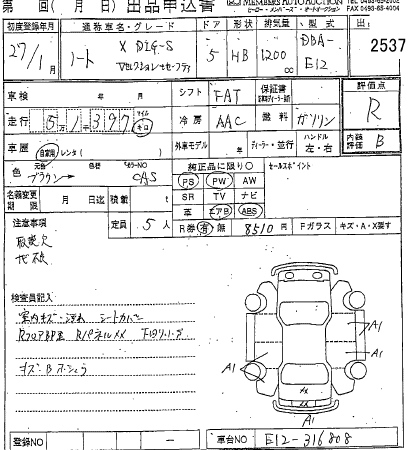 第 回( 月 日) 出品申込書 MEMBERS AUTO AUCTION
FAX 0493-65-4004
初度登録年月 通称車名・グレード ドア 形状 排気量 型式 出
27/1月 ノート X DIG-S 5 HB 1200cc DBA-E12 2537
Vセレクション+セーフティ
車検 年 月 シフト FAT 保証書 評価点
走行 51397 マイル キロ 冷房 AAC 燃料 ガソリン R
車歴 自家用 レンタ( ) 外車モデル 年 ディーラー・並行 ハンドル 左・右 内装評価 B
色 元色 ブラウン 色替 カラーNO CAS 純正品に限り○ セールスポイント
PS PW AW
名義変更期限 月 日迄 積載 t SR TV ナビ
革 エアB ABS
注意事項 定員 5人 R券 有 無 8510円 Fガラス キズ・A・X要す
取説欠
検査員記入
室内キズ・汚れ シートカバー
RフロアBP歪 RパネルXX
A1
A1
A1
A1
XX
登録NO - 車台NO E12-316808